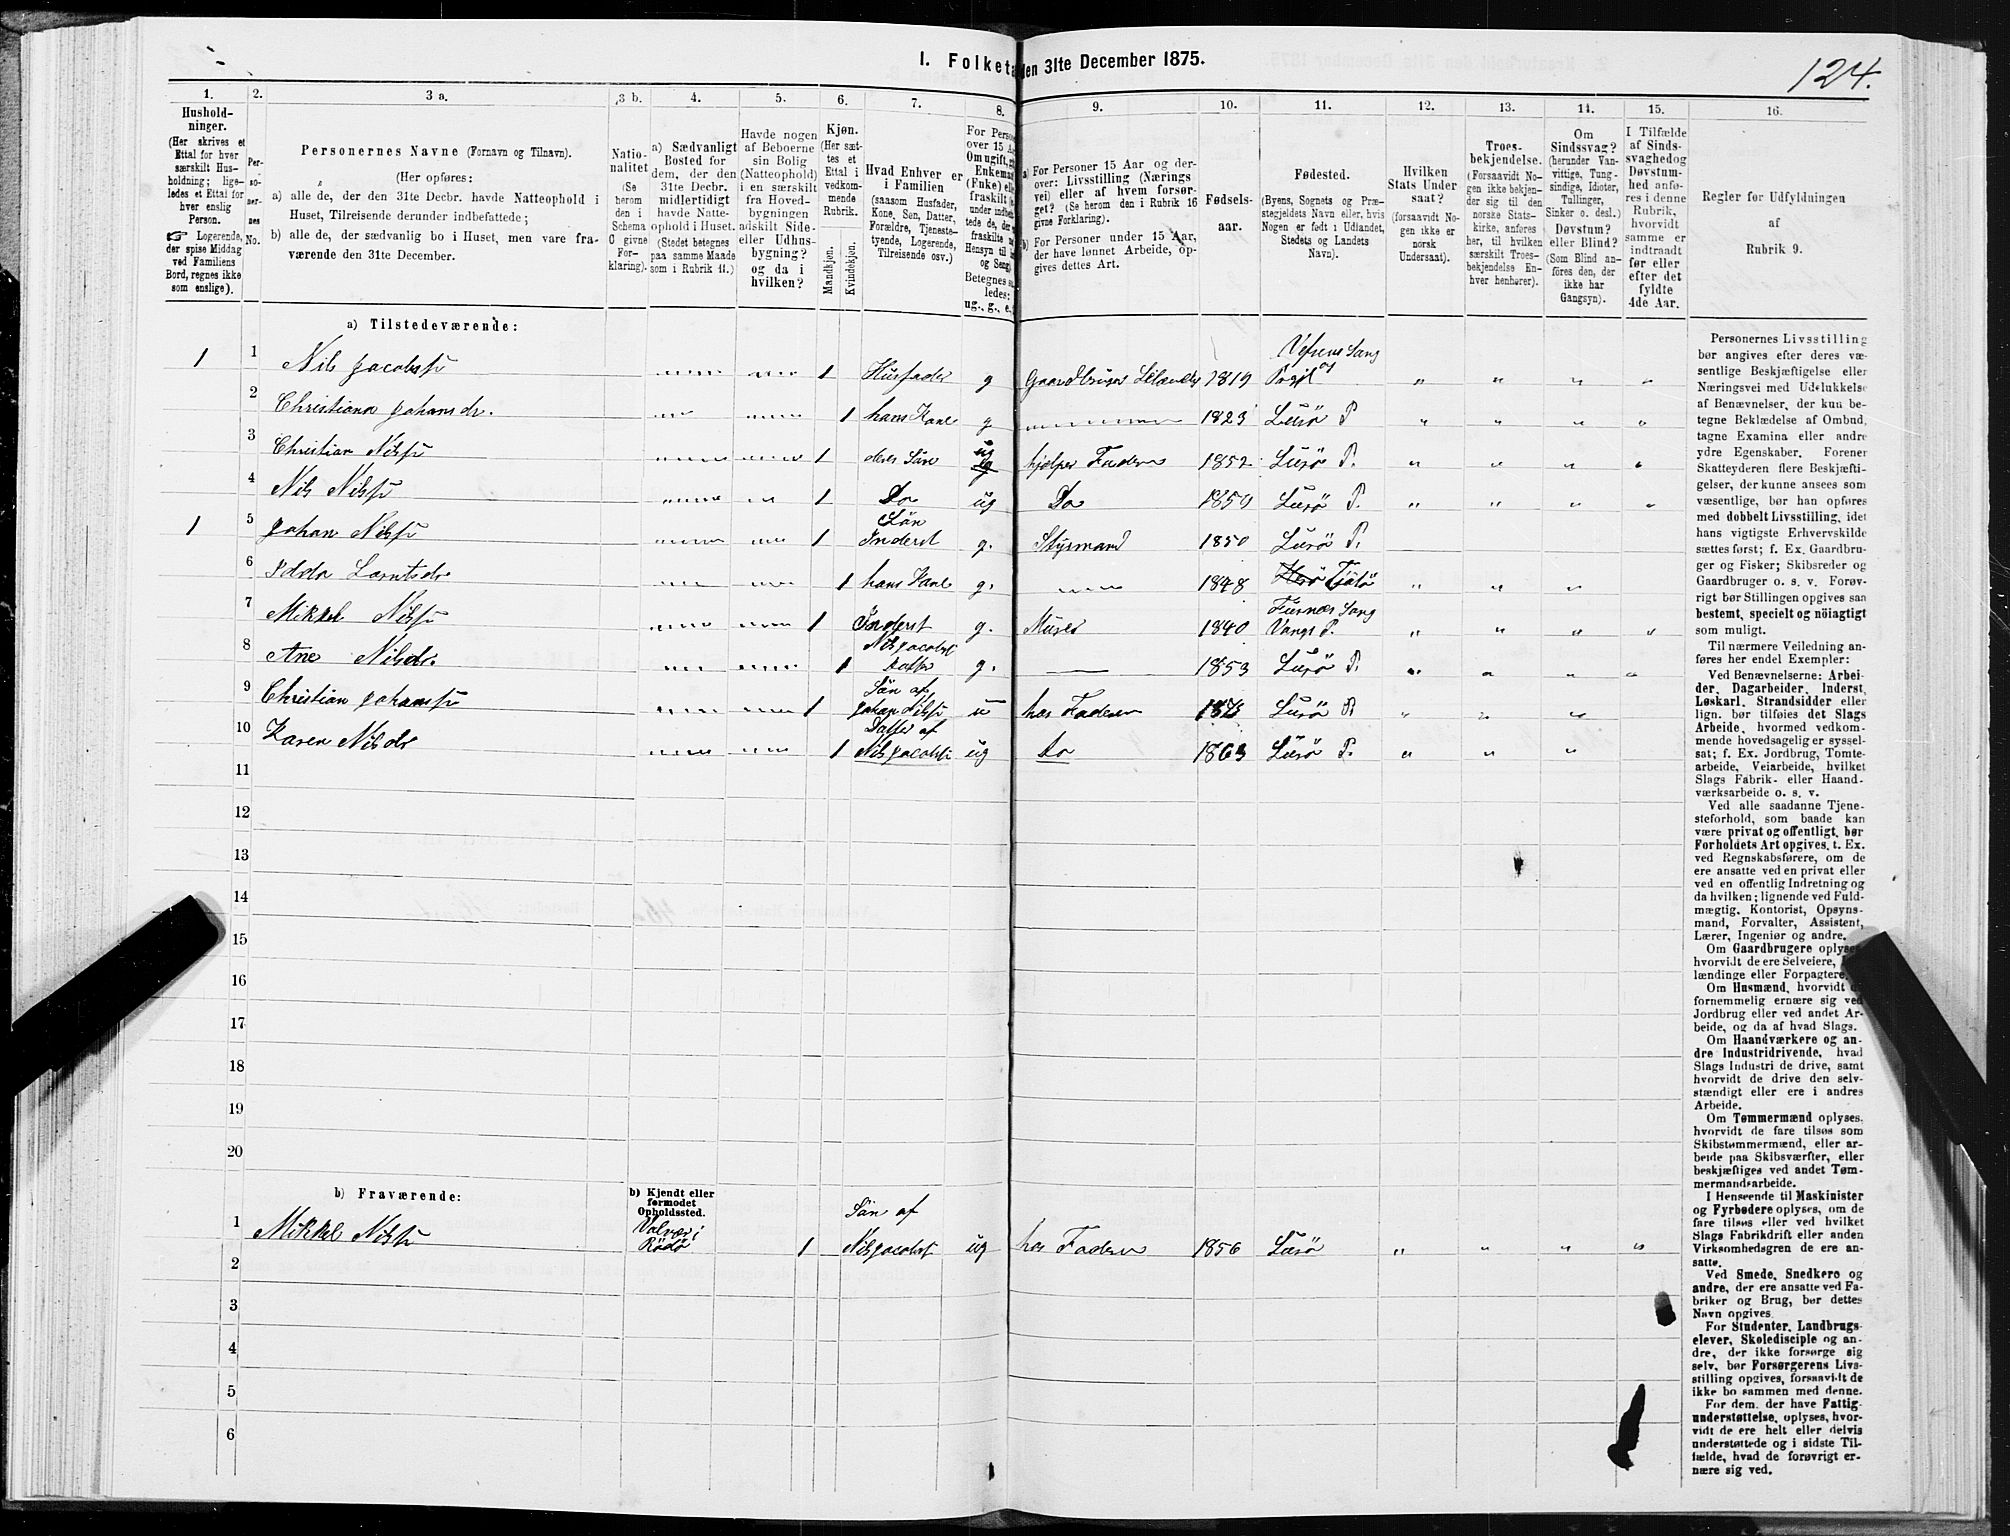 I. Folketæ
den 31te December 1875.
124.
1.
2.
3 a.
3 b.
4.
5.
6.
7.
8.
9.
10.
11.
12.
13.
14.
15.
16.
Hushold-
ninger.
(Her skrives et
Ettal for hver
særskilt Hus-
holdning; lige-
ledes et Ettal for
hver enslig
Person.
☞ Logerende,
der spise Middag
ved Familiens
Bord, regnes ikke
som enslige).
Per-
so-
ner-
nes
No.
Personernes Navne (Fornavn og Tilnavn).
(Her opføres:
a) alle de, der den 31te Decbr. havde Natteophold i
Huset, Tilreisende derunder indbefattede;
b) alle de, der sædvanlig bo i Huset, men vare fra-
værende den 31te December.
Natio-
nalitet
(Se
herom
den i
Schema
O givne
For-
klaring).
a) Sædvanligt
Bosted for
dem, der den
31te Decbr.
midlertidigt
havde Natte-
ophold i Huset.
(Stedet betegnes
paa samme Maade
som i Rubrik 11.)
Havde nogen
af Beboerne
sin Bolig
(Natteophold)
i en særskilt
fra Hoved-
bygningen
adskilt Side-
eller Udhus-
bygning?
og da i
hvilken?
Kjøn.
(Her sæt-
tes et
Ettal i
vedkom-
mende
Rubrik.
Mandkjøn.
Kvindekjøn.
Hvad Enhver er
i Familien
(saasom Husfader,
Kone, Søn, Datter,
Forældre, Tjeneste-
tyende, Logerende,
Tilreisende osv.)
For Perso
over 15 A
Om ugift, gi
Enkeman
(Enke) elle
fraskilt
under indbe
tede de, de
fraskilte
Hensyn til
og Seng
Betegnes s
ledes:
ug., g., e.,
a) For Personer 15 Aar og der-
over: Livsstilling (Nærings
vei) eller af hvem forsør-
get? (Se herom den i Rubrik 16
givne Forklaring).
b) For Personer under 15 Aar,
der have lønnet Arbeide, op-
gives dettes Art.
Fødsels-
aar.
Fødested.
(Byens, Sognets og Præ-
stegjeldets Navn eller, hvis
Nogen er født i Udlandet,
Stedets og Landets
Navn).
Hvilken
Stats Under
saat?
(forsaavidt No-
gen ikke er
norsk
Undersaat).
Troes-
bekjendelse.
(Forsaavidt No-
gen ikke bekjen-
der sig til den
norske Stats-
kirke, anføres
her, til hvilken
særskilt Troes-
bekjendelse En-
hver henhører).
Om
Sindssvag?
(herunder Van-
vittige, Tung-
sindige, Idioter,
Tullinger,
Sinker o. desl.)
Døvstum?
eller Blind?
(Som Blind an-
føres den, der
ikke har
Gangsyn).
I Tilfælde
af Sinds-
svaghed og
Døvstum-
hed anfø-
res i denne
Rubrik,
hvorvidt
samme er
indtraadt
før eller
efter det
fyldte
4de Aar.
Regler for Udfyldningen
af
Rubrik 9.
a) Tilstedeværende:
1 1 Nils Jacobsen 1 Husfader g Gaardbruger Leilænding 1819 Vefsens Sang og Pregjl " " " "
2 Christiana Johansdr. 1 hans Kone g 1823 Lurø P " " " "
3 Christian Nilsen 1 deres Sön ug hjelper Faderen 1852 Lurö P. " " " "
4 Nils Nilsen 1 Do ug Do 1859 Lurö P. " " " "
1 5 Johan Nilsen 1 Sön Inderst g. Styrmand 1850 Lurö P.
6 Idda Larntsdr 1 hans Kone g. 1848 Herö Tjötö " " " "
7 Mikkel Nilsen 1 Inderst g. Murer 1840 Furnæs Sang Vangs P. " " " "
8 Ane Nilsdr. 1 Nils Jacobsen datter g. 1853 Lurö P. " " " "
9 Christian Johansen 1 Sön af Johan Nilsen u hos Faderen 1873 Lurö P. " " "
10 Karen Nilsdr 1 Datter af Nils Jacobsen ug do 1863 Lurö P. " " "
11
12
13
14
15
16
17
18
19
20
b) Fraværende:
b) Kjendt eller
formodet
Opholdssted.
1 Mikkel Nilsen Valvær i Rödö 1 Sön af Nils Jacobsen ug hos Faderen 1856 Lurö " " " "
2
3
4
5
6
Personernes Livsstilling
bør angives efter deres væ-
sentlige Beskjæftigelse eller
Næringsvei med Udelukkelse
af Benævnelser, der kun be-
tegne Beklædelse af Ombud,
tagne Examina eller andre
ydre Egenskaber. Forener
Skatteyderen flere Beskjæfti-
gelser, der kunne ansees som
væsentlige, bør han opføres
med dobbelt Livsstilling, idet
hans vigtigste Erhvervskilde
sættes først; f. Ex. Gaardbru-
ger og Fisker; Skibsreder og
Gaardbruger o. s. v. Forøv-
rigt bør Stillingen opgives saa
bestemt, specielt og nöiagtigt
som muligt.
Til nærmere Veiledning an-
føres her endel Exempler:
Ved Benævnelserne: Arbei-
der, Dagarbeider, Inderst,
Løskarl, Strandsidder eller
lign. bør tilføies det Slags
Arbeide, hvormed vedkom-
mende hovedsagelig er syssel-
sat; f. Ex. Jordbrug, Tomte-
arbeide, Veiarbeide, hvilket
Slags Fabrik- eller Haand-
værksarbeide o. s. v.
Ved alle saadanne Tjene-
steforhold, som baade kan
være privat og offentligt, bør
Forholdets Art opgives, t. Ex.
ved Regnskabsførere, om de
ere ansatte ved en privat eller
ved en offentlig Indretning og
da hvilken; lignende ved Fuld-
mægtig, Kontorist, Opsyns-
mand, Forvalter, Assistent,
Lærer, Ingeniør og andre.
Om Gaardbrugere oplyses,
hvorvidt de ere Selveiere,
lændinge eller Forpagtere.
Om Husmænd, hvorvidt de
fornemmelig ernære sig ved
Jordbrug eller ved andet Ar-
beide, og da af hvad Slags.
Om Haandværkere og an-
dre Industridrivende, hvad
Slags Industri de drive, samt
hvorvidt de drive den selv-
stændigt eller ere i andres
Arbeide.
Om Tømmermænd oplyses,
hvorvidt de fare tilsøs som
Skibstømmermænd, eller ar-
beide paa Skibsværfter, eller
beskjæftiges ved andet Tøm-
mermandsarbeide.
I Henseende til Maskinister
og Fyrbødere oplyses, om de
fare tilsøs eller ved hvilket
Slags Fabrikdrift eller anden
Virksomhedsgren de ere an-
satte.
Ved Smede, Snedkere og
andre, der ere ansatte ved Fa-
briker og Brug, bør dettes
Navn opgives.
For Studenter, Landbrugs-
elever, Skoledisciple og an-
dre, der ikke forsørge sig
selv, bør Forsørgerens Livs-
stilling opgives, forsaavidt de
ikke bo sammen med denne.
For dem, der have Fattig-
understøttelse, oplyses, hvor-
vidt de ere helt eller delvis
understøttede og i sidste Til-
fælde, hvad de forøvrigt er-
nære sig ved.